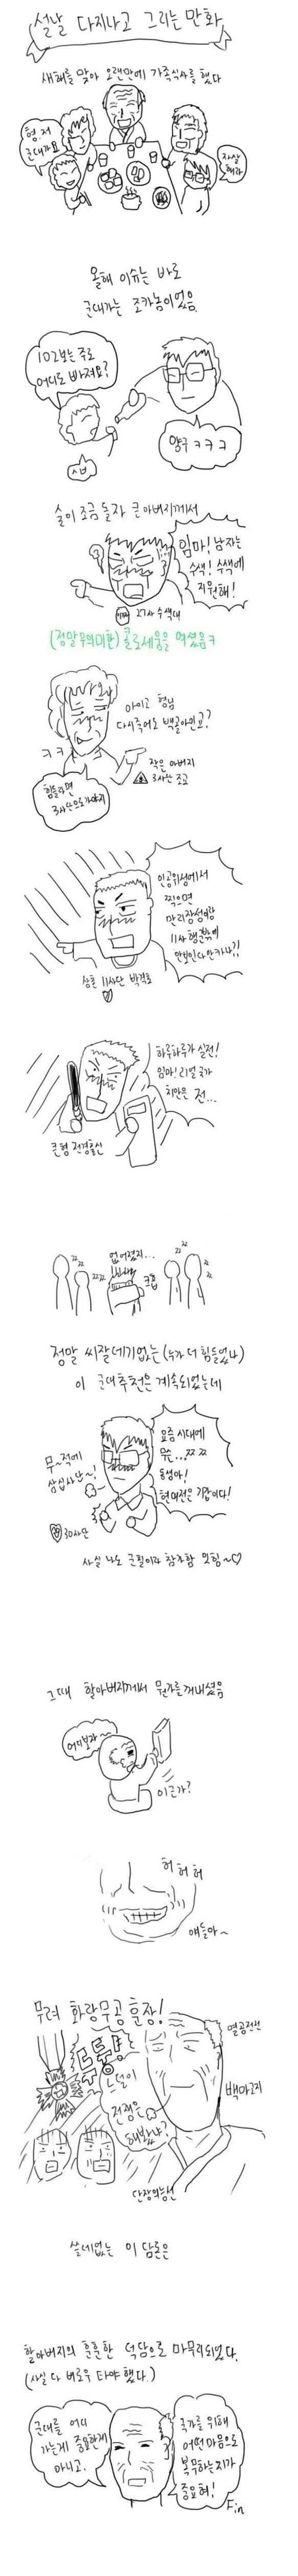 설날 다지나고 그리는 만화
새해를 맞아 오랜만에 가족식사를 했다
형 저
군대가요
자살
해라
올해 이슈는 바로
군대가는 조카놈이었음
102보는 주로
어디로 빠져요?
양구 ㅋㅋㅋ
술이 조금 돌자 큰아버지께서
임마! 남자는
수색! 수색에
지원해!
27사 수색대
(정말무의미한) 콜로세움을 여셨음ㅋ
아이고 형님
다시죽어도 백골아인교?
ㅋㅋ
작은 아버지
3사단 조교
힘들라면
3사단으로가야지
인공위성에서
찍으면
만리장성이랑
11사 행군밖에
안보인다 안카나?!
삼촌 11사단 박격포
하루하루가 실전!
임마! 리얼 국가
치안은 전...
큰형 전경출신
없어졌지...
크흡
정말 씨잘데기없는 (누가 더 힘들었나)
이 군대추천은 계속되었는데
요즘시대에
무슨.. ㅉㅉ
동생아!
현대전은 기갑이다!
무~적에
삼십사단~!
30사단
사실 나도 군필이라 참가함 엣헴~♡
그때 할아버지께서 뭔가를 꺼내셨음
어디보자~
이근가?
허허허
얘들아~
무려 화랑무공훈장!
두둥!
느덜이
전쟁은
해봤냐?
백마고지
단장의능선
쓸데없는 이 담론은
할아버지의 훈훈한 덕담으로 마무리되었다.
(사실 다 버로우 타야했다.)
군대를 어디
가는게 중요한게
아니고.
국가를 위해
어떤마음으로
복무하는지가
중요혀!
Fin